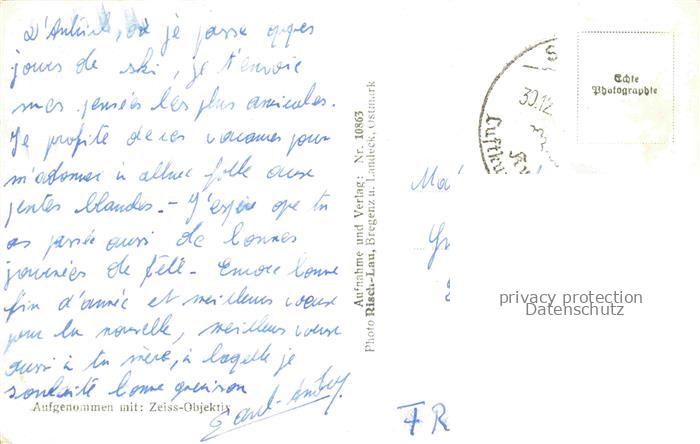 D'Autriche, où je passe qques
jours de ski, je t'envoie
mes pensées les plus amicales.
Je profite de ces vacances pour
m'adonner à allure folle aux
pentes blanches. - J'espère que tu
as passé aussi de bonnes
journées de fête - Encore bonne
fin d'année et meilleurs voeux
pour la nouvelle, meilleurs voeux
aussi à ta mère, à laquelle je
souhaite bonne guérison
Aufgenommen mit: Zeiss-Objektiv
Aufnahme und Verlag: Nr. 10863
Photo Risch-Lau, Bregenz u. Landeck, Ostmark
30.12.
Echte
Photographie
Ma
FR
privacy protection
Datenschutz